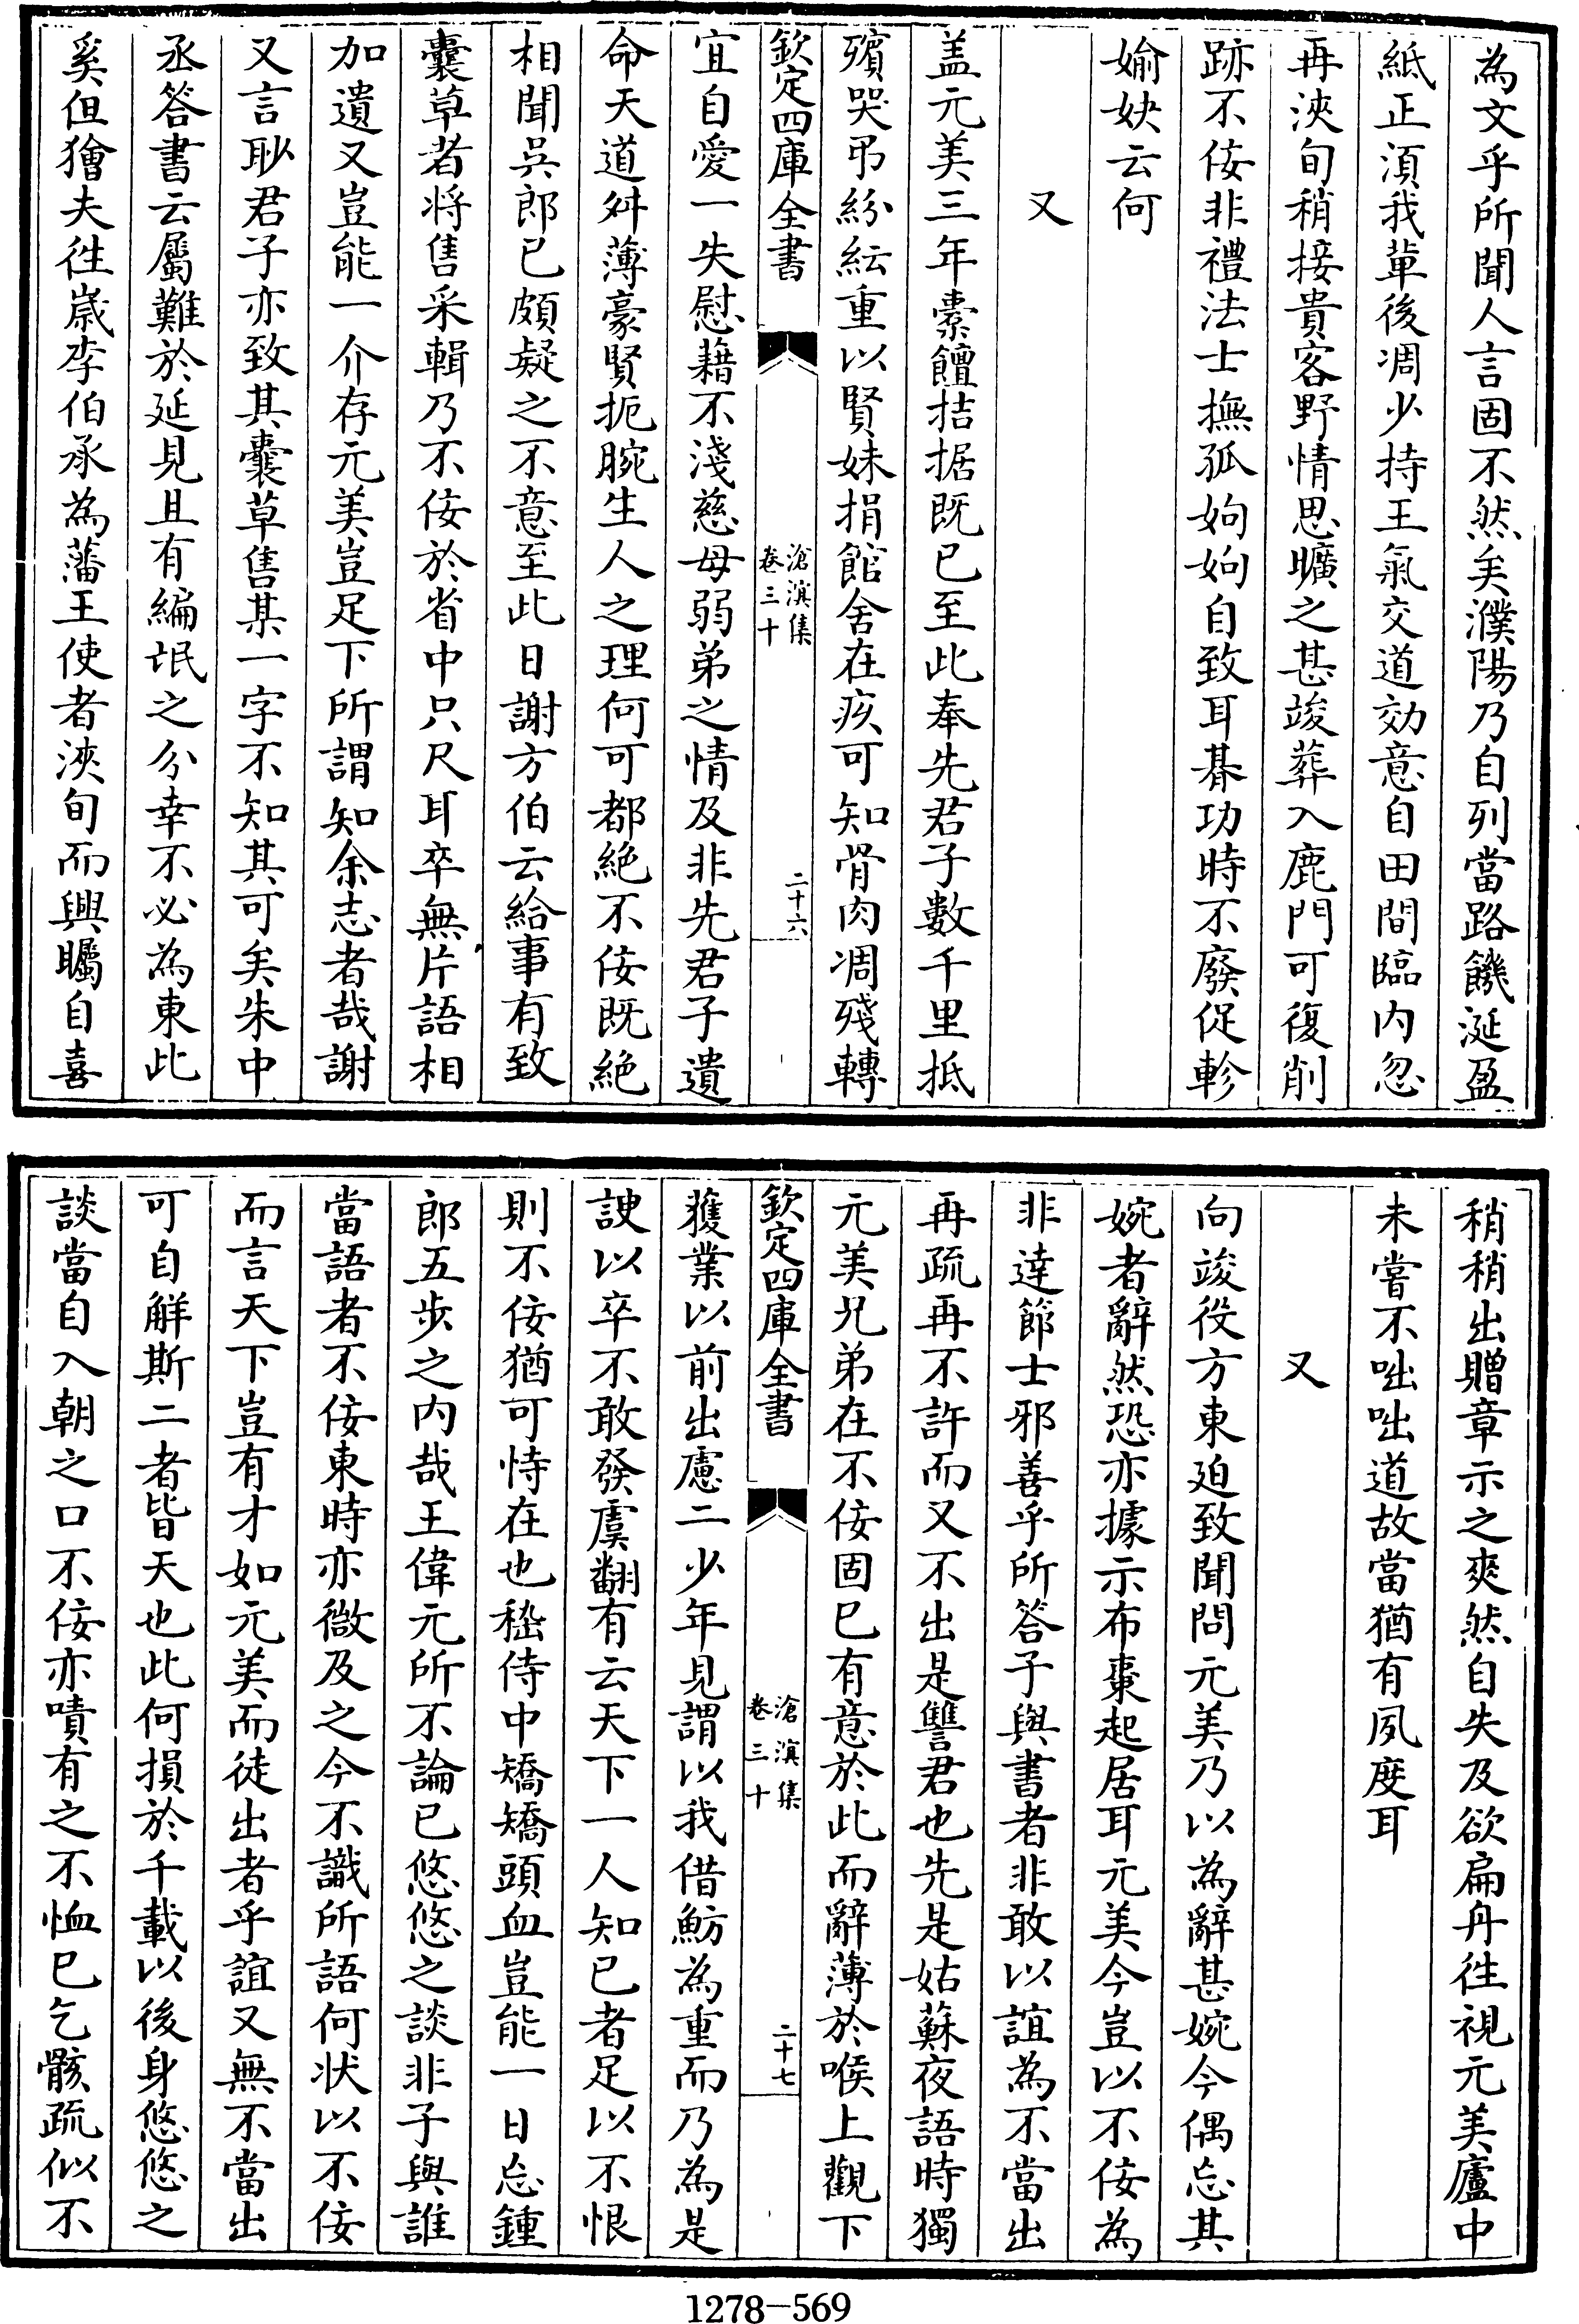 為文乎所聞人言固不然矣濮陽乃自列當路饑涎盈
紙正須我輩後凋少持王氣交道効意自田間臨內忽
再浹旬稍接貴客野情思曠之甚竣葬入鹿門可復削
跡不佞非禮法士撫孤姁姁自致耳朞功時不廢促軫
婾妜云何
又
盖元美三年橐饘拮据既已至此奉先君子數千里抵
殯哭弔紛紜重以賢妹捐館舍在疚可知骨肉凋殘轉
欽定四庫全書
滄溟集
卷三十
二十六
宜自愛一失慰藉不淺慈母弱弟之情及非先君子遺
命天道舛薄豪賢扼腕生人之理何可都絶不佞既絶
相聞吳郎已頗疑之不意至此日謝方伯云給事有致
囊草者将售采輯乃不佞於省中只尺耳卒無片語相
加遺又豈能一介存元美豈足下所謂知余志者哉謝
又言耿君子亦致其囊草售某一字不知其可矣朱中
丞答書云屬難於延見且有編氓之分幸不必為東此
奚但獪夫徃嵗李伯承為藩王使者浹旬而興矚自喜
稍稍出贈章示之爽然自失及欲扁舟徃視元美廬中
未嘗不咄咄道故當猶有夙度耳
又
向竣役方東廹致聞問元美乃以為辭甚婉今偶忘其
婉者辭然恐亦據示布棗起居耳元美今豈以不佞為
非逹節士邪善乎所答子與書者非敢以誼為不當出
再疏再不許而又不出是讐君也先是姑蘇夜語時獨
元美兄弟在不佞固已有意於此而辭薄於喉上觀下
欽定四庫全書
滄溟集
卷三十
二十七
獲業以前出慮二少年見謂以我借魴為重而乃為是
諛以卒不敢發虞翻有云天下一人知已者足以不恨
則不佞猶可恃在也嵇侍中矯矯頭血豈能一日忘鍾
郎五步之內哉王偉元所不論已悠悠之談非子與誰
當語者不佞東時亦微及之今不識所語何状以不佞
而言天下豈有才如元美而徒出者乎誼又無不當出
可自解斯二者皆天也此何損於千載以後身悠悠之
談當自入朝之口不佞亦嘖有之不恤已乞骸疏似不
1278—569